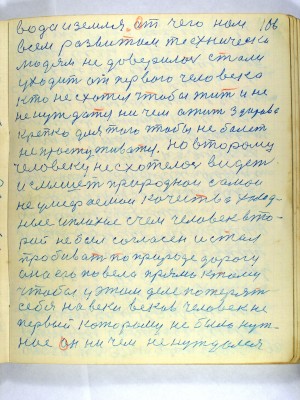 вода и земля. от чего нам 106
всем развитым технически
людям не доверилос стали
уходит от первого человека
кто не схотел чтобы жит и не
не нуждатся ни чем а жит здорово
крепко для того чтобы не болет
не простуживатся. но второму
человеку не схотелос видет
и слышет природной самой
не умираемой качество уход-
ные и плохие с чем человек вто-
рой не был согласен и стал
пробиват по природе дорогу
она его повела прямо к тому
чтобы у этом деле потерят
себя на веки веков человек не
первый которому не было нуж-
ное он ни чем не нуждался